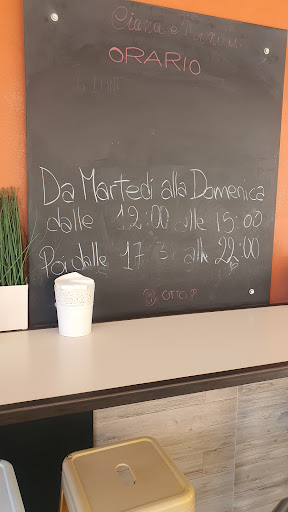 ORARIO
Da Martedì alla Domenica
dalle 12:00 alle 15:00
Poi dalle 17 alle 22:00
OTTO